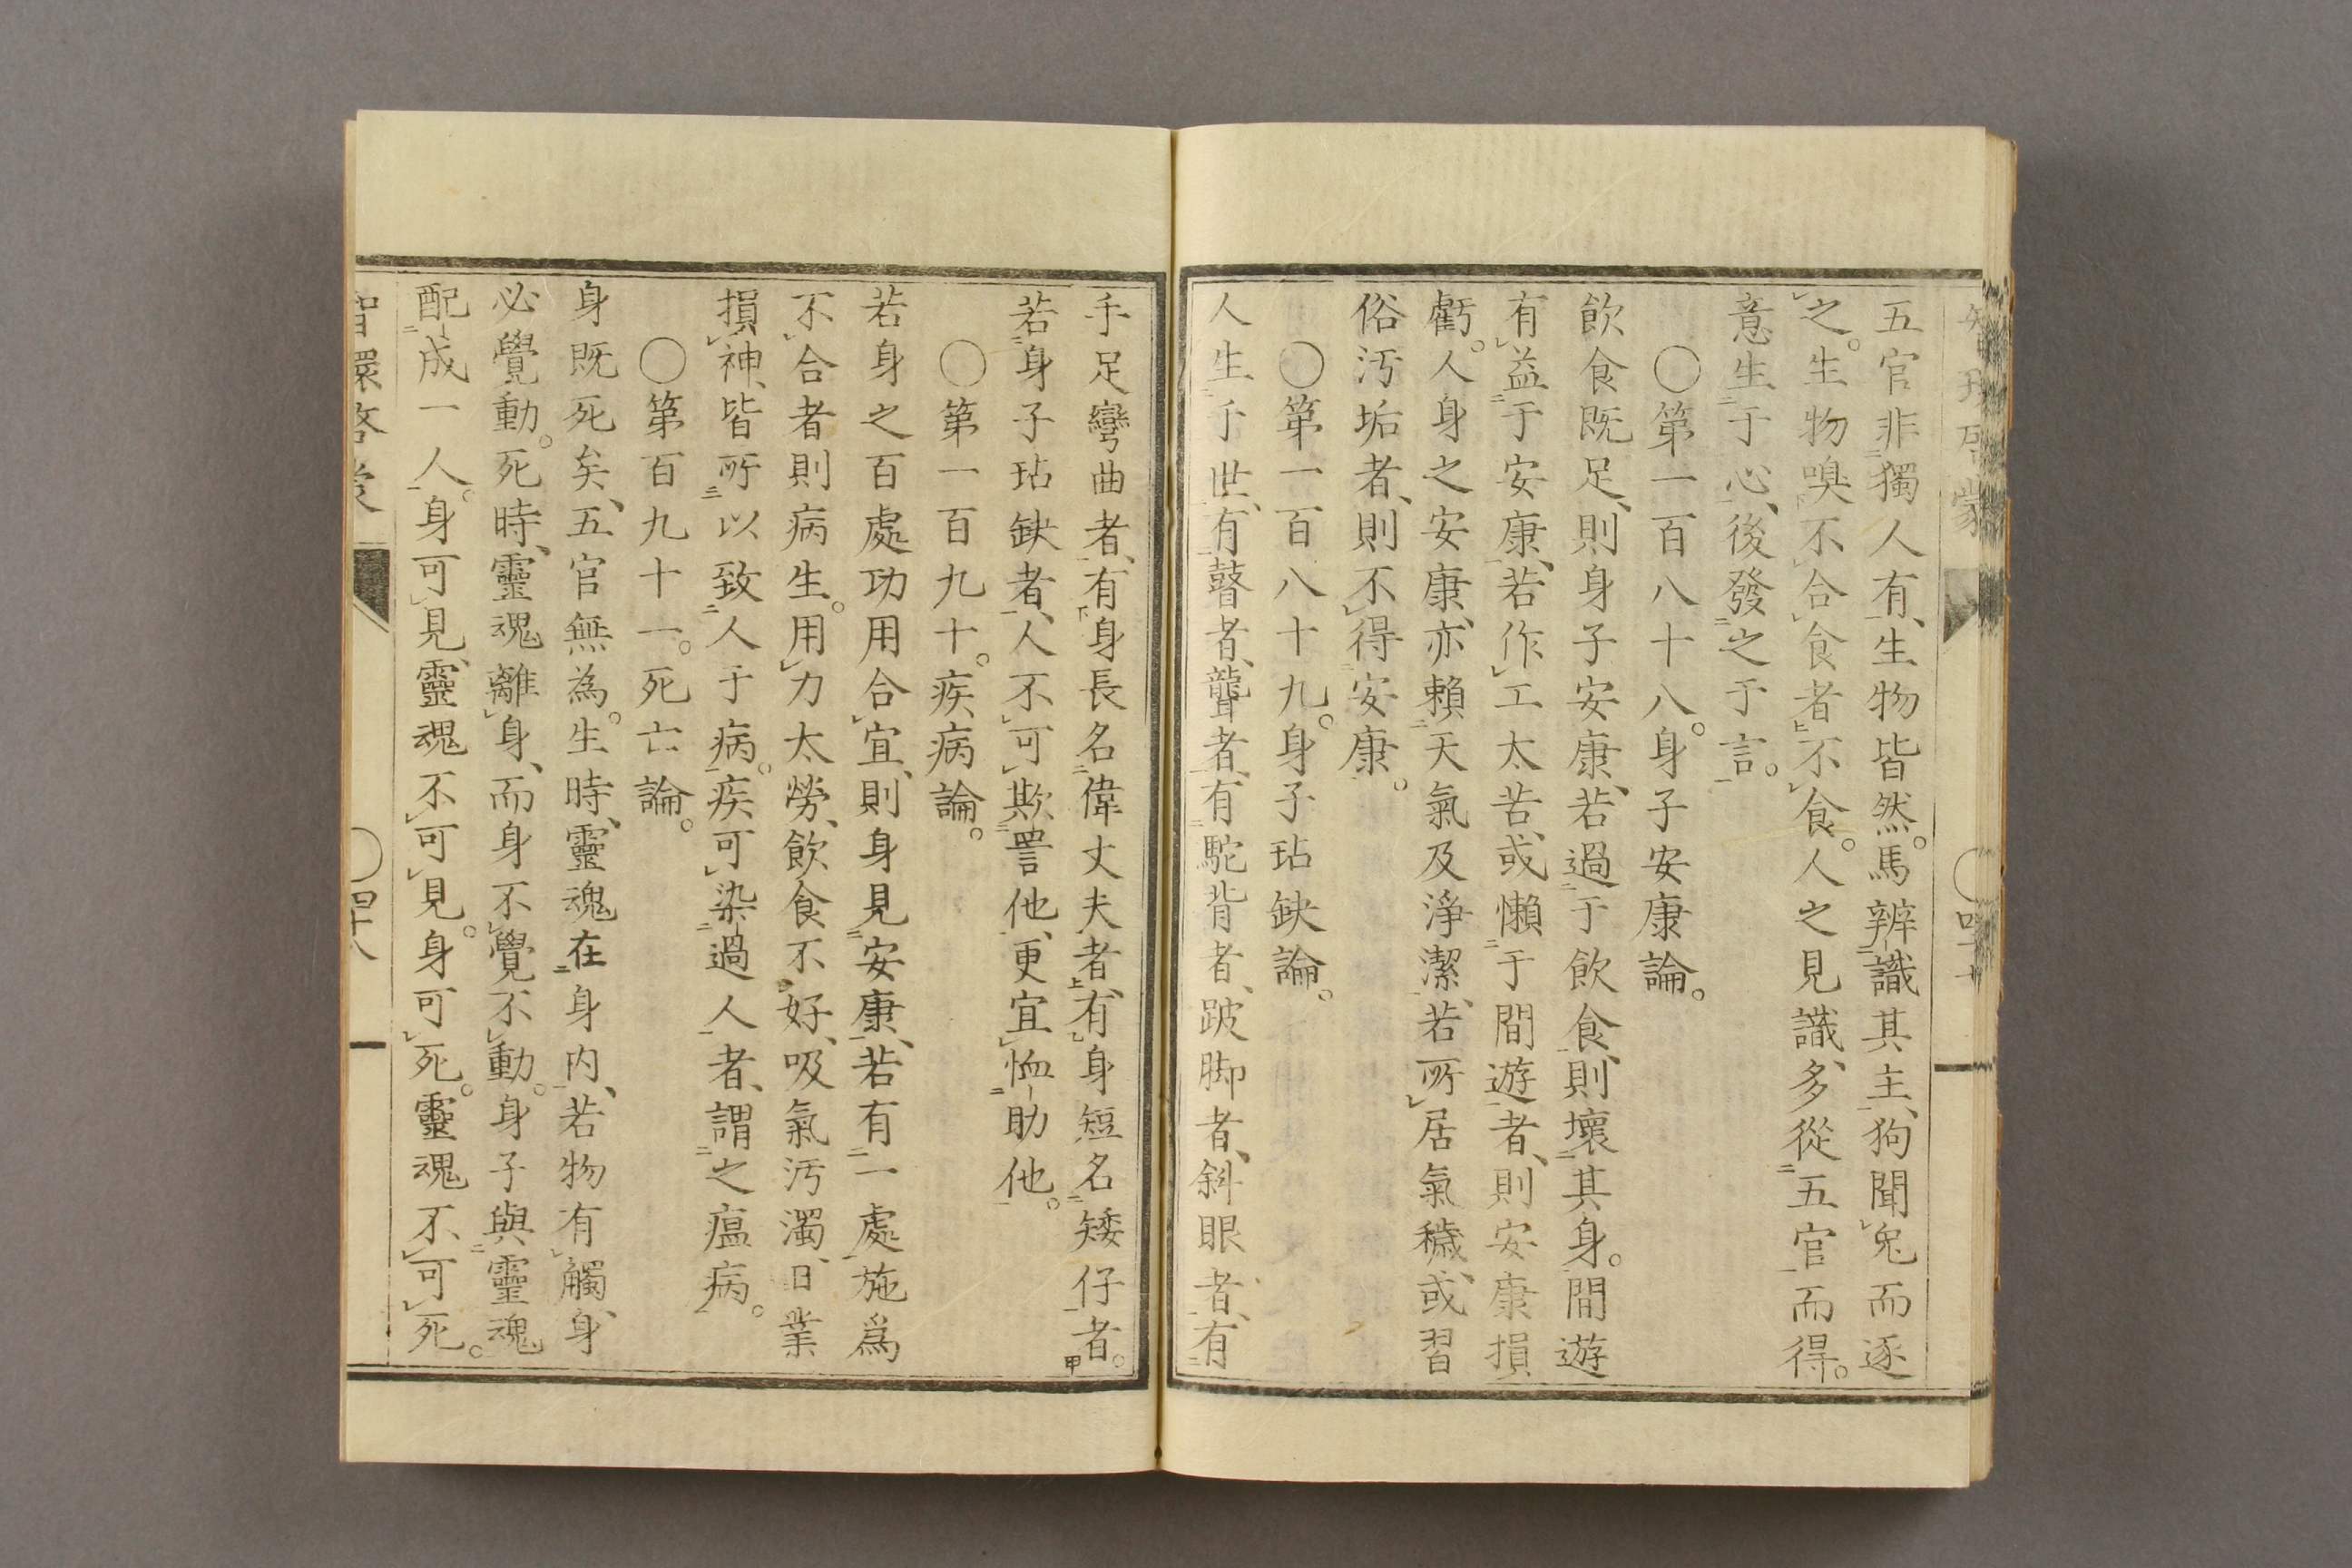 五官非獨人有、生物皆然。馬辨識其主、狗聞兔而逐
之。生物嗅不合食者不食。人之見識、多從五官而得。
意生于心、後發之于言。
〇第一百八十八。身子安康論。
飲食既足、則身子安康、若過于飲食、則壞其身。閒遊
有益于安康、若作工太苦、或懶于閒遊者、則安康損
虧。人身之安康、亦賴天氣及淨潔、若所居氣穢、或習
俗汚垢者、則不得安康。
〇第一百八十九。身子玷缺論。
人生于世、有瞽者、聾者、有駝背者、跛脚者、斜眼者、有
手足彎曲者、有身長名偉丈夫者、有身短名矮仔者。
若身子玷缺者、人不可欺詈他、更宜恤助他。
〇第一百九十。疾病論。
若身之百處功用合宜、則身見安康、若有一處施爲
不合者則病生。用力太勞、飲食不好、吸氣汚濁、日業
損神、皆所以致人于病。疾可染過人者、謂之瘟病。
〇第百九十一。死亡論。
身既死矣、五官無為。生時、靈魂在身內、若物有觸身、
必覺動。死時、靈魂離身、而身不覺不動。身子與靈魂
配成一人。身可見、靈魂不可見。身可死。靈魂不可死。
智環啓蒙 〇四十八